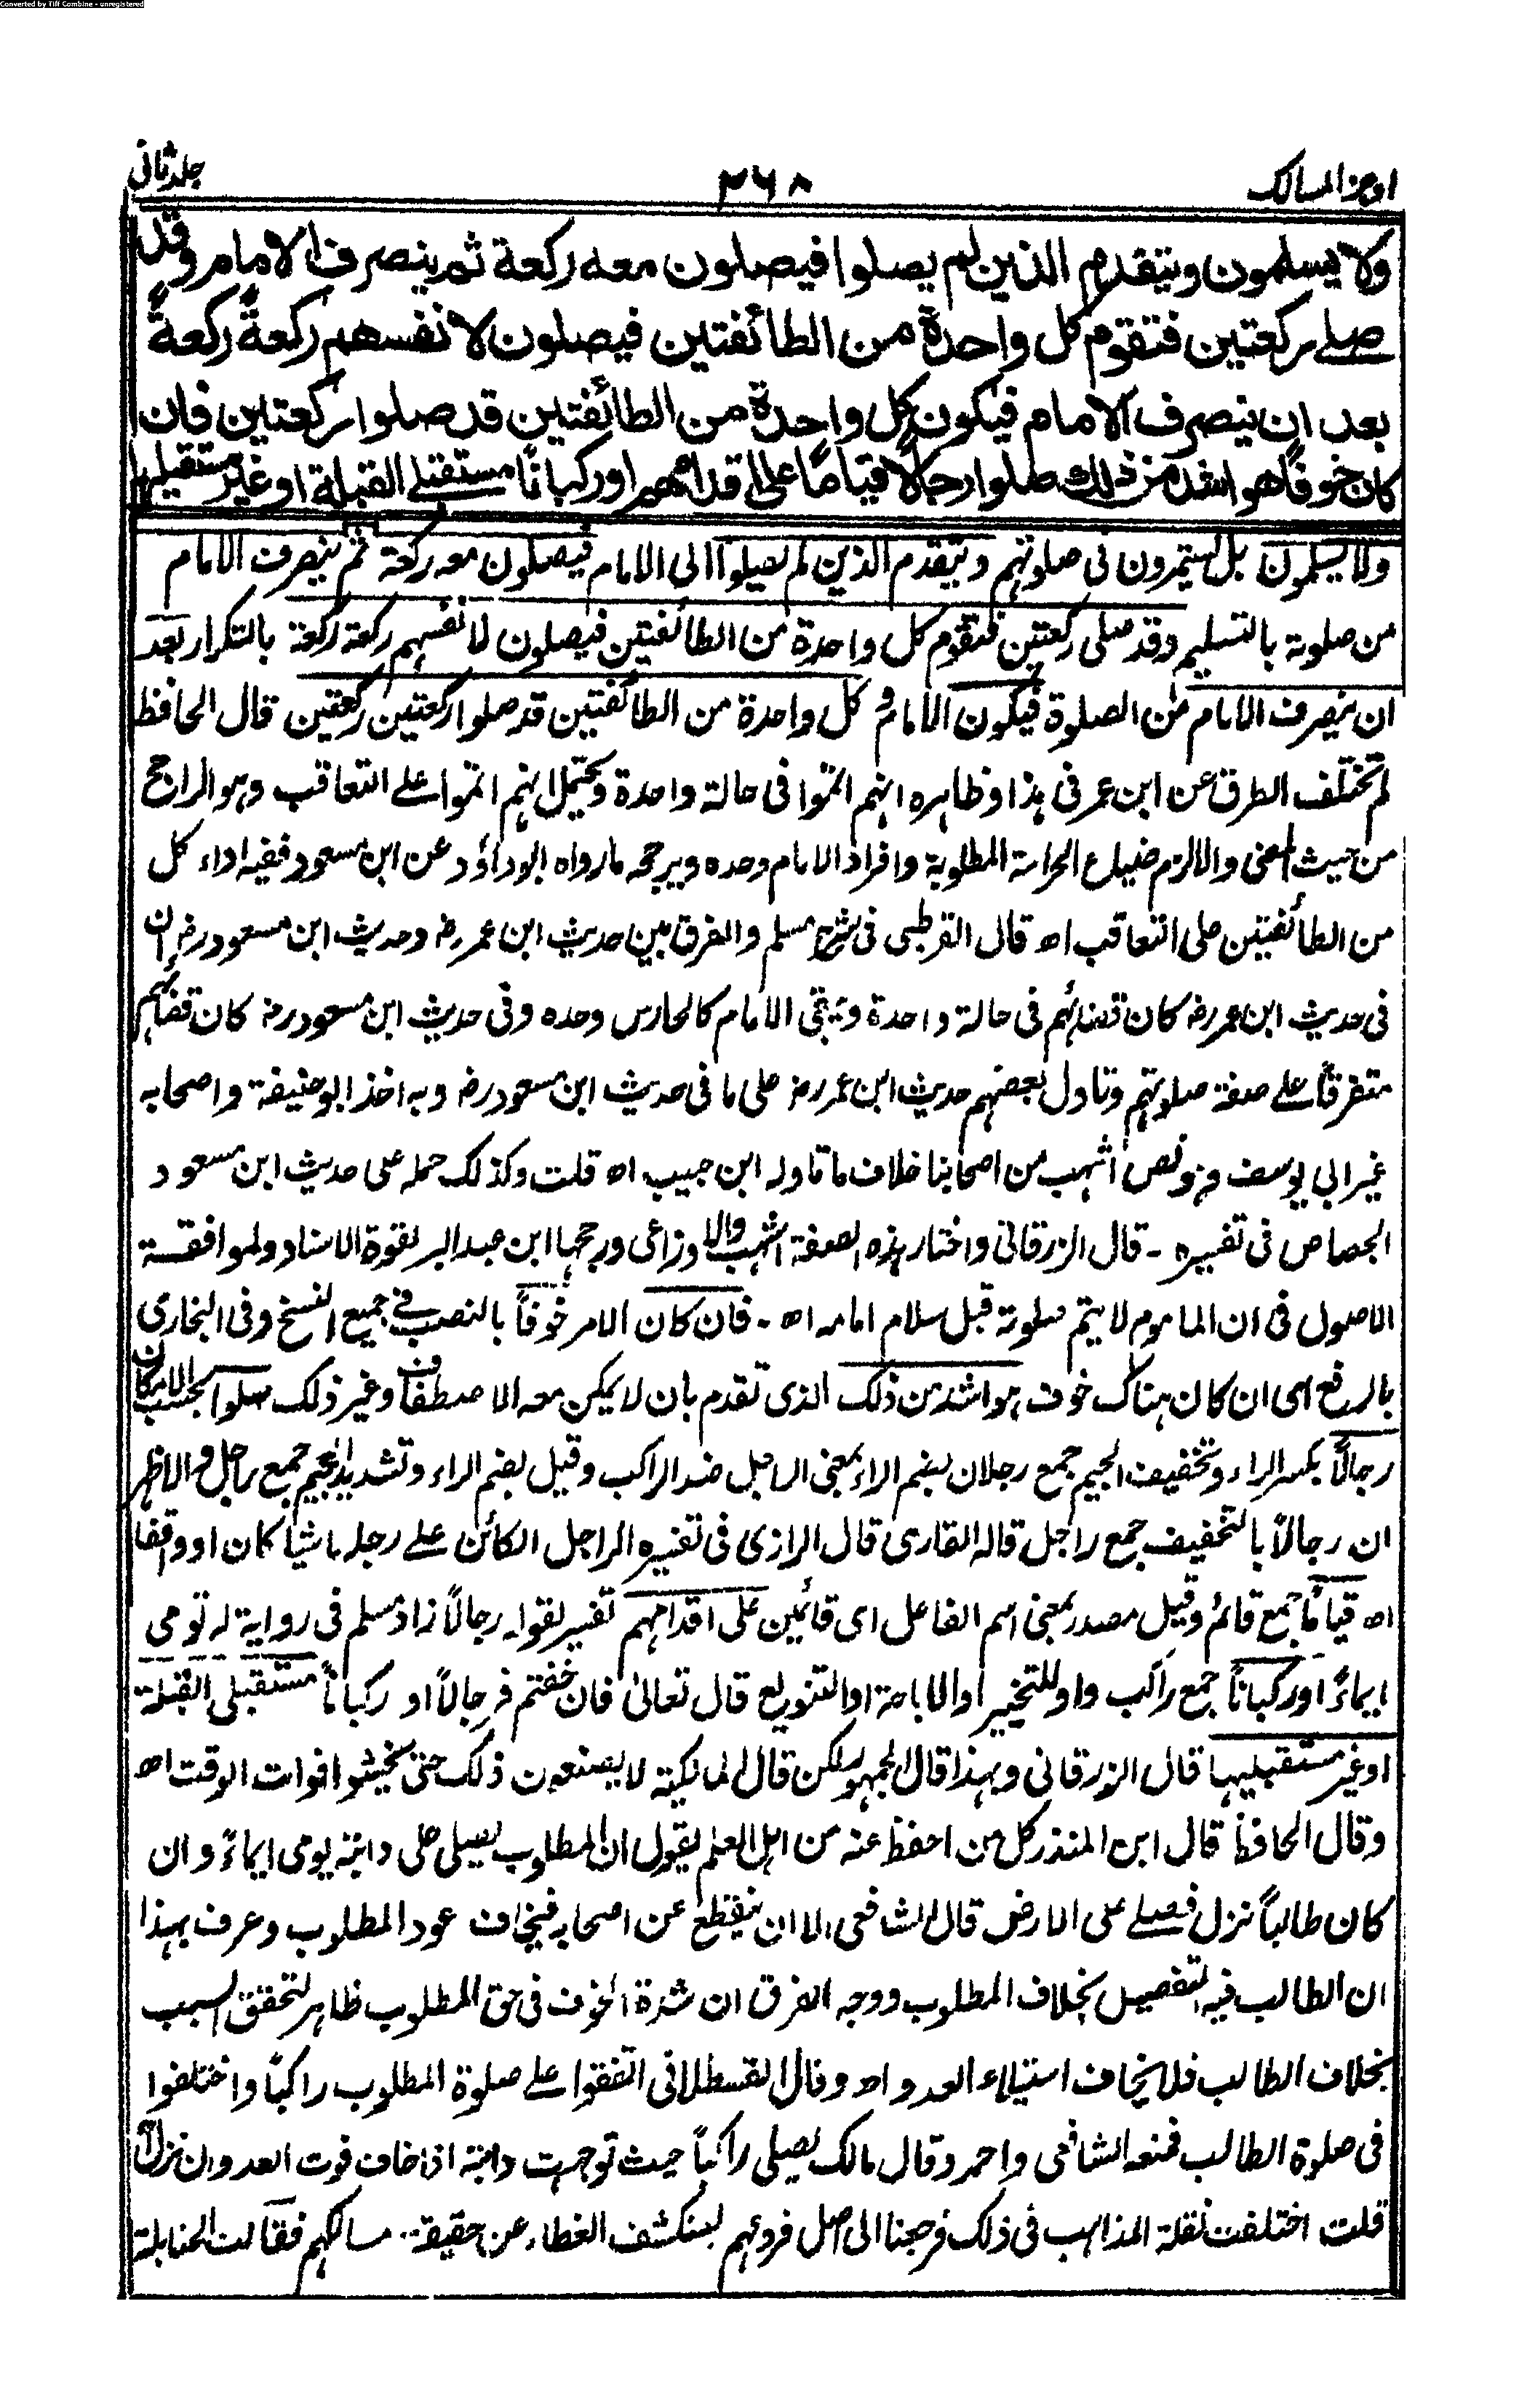 Converted by Tiff Combine - unregistered
اوجز المسالك ٢٦٨ جلد ثانى
ولا يسلمون ويتقدم الذين لم يصلوا فيصلون معه ركعة ثم ينصرف الامام وقد
صلى ركعتين فتقوم كل واحدة من الطائفتين فيصلون لانفسهم ركعةً ركعةً
بعد ان ينصرف الامام فيكون كل واحدة من الطائفتين قد صلوا ركعتين فان
كان خوفًا هو اشد من ذلك صلوا رجالًا قيامًا على اقدامهم اوركبانًا مستقبلے القبلة او غير مستقبليها
ولا يسلمون بل يستمرون فى صلوتهم ويتقدم الذين لم يصلوا الى الامام فيصلون معه ركعة ثم ينصرف الامام
من صلوته بالتسليم وقد صلى ركعتين فتقوم كل واحدة من الطائفتين فيصلون لانفسهم ركعة ركعة بالتكرار بعد
ان ينصرف الامام من الصلوة فيكون الامام و كل واحدة من الطائفتين قد صلوا ركعتين ركعتين قال الحافظ
لم تختلف الطرق عن ابن عمر فى هذا وظاهره انهم اتموا فى حالة واحدة ويحتمل انهم اتموا على التعاقب وهو الراجح
من حيث المعنى والا لزم ضياع الحراسة المطلوبة وافراد الامام وحده ويرجحه مارواه ابوداؤد عن ابن مسعود ففيه اداء كل
من الطائفتين على التعاقب اه قال القرطبى فى شرح مسلم والفرق بين حديث ابن عمر رض وحديث ابن مسعود رض ان
فى حديث ابن عمر رض كان قضائهم فى حالة واحدة ويبقى الامام كالحارس وحده وفى حديث ابن مسعود رض كان قضائهم
متفرقاً على صفة صلوتهم وتاول بعضهم حديث ابن عمر رض على ما فى حديث ابن مسعود رض وبه اخذ ابو حنيفة واصحابه
غير ابى يوسف وهو نص اشهب من اصحابنا خلاف ما تاوله ابن حبيب اه قلت وكذلك حمله على حديث ابن مسعود
الجصاص فى تفسيره - قال الزرقانى واختار هذه الصفة اشهب والاوزاعى ورجحها ابن عبد البر لقوة الاسناد ولموافقة
الاصول فى ان الماموم لا يتم صلوته قبل سلام امامه اه - فان كان الامر خوفاً بالنصب فى جميع النسخ وفى البخارى
بالرفع اى ان كان هناك خوف هو اشد من ذلك الذى تقدم بان لا يمكن معه الاصطفاف وغير ذلك صلوا بحسب الامكان
رجالاً بكسر الراء وتخفيف الجيم جمع رجلان بضم الراء بمعنى الراجل ضد الراكب وقيل بضم الراء وتشديد الجيم جمع راجل والاظهر
ان رجالاً بالتخفيف جمع راجل قاله القارى قال الرازى فى تفسيره الراجل الكائن على رجله ماشيا كان او واقفا
اه قياماً جمع قائم وقيل مصدر بمعنى اسم الفاعل اى قائمين على اقدامهم تفسير لقوله رجالاً زاد مسلم فى رواية له تومى
ايماءً اوركباناً جمع راكب واو للتخيير او الاباحة او التنويع قال تعالى فان خفتم فرجالاً او ركباناً مستقبلى القبلة
او غير مستقبليها قال الزرقانى وبهذا قال الجمهور لكن قال المالكية لا يصنعون ذلك حتى يخشوا فوات الوقت اه
وقال الحافظ قال ابن المنذر كل من احفظ عنه من اهل العلم يقول ان المطلوب يصلى على دابته يومى ايماءً وان
كان طالباً نزل فصلى على الارض قال الشافعى الا ان ينقطع عن اصحابه فيخاف عود المطلوب وعرف بهذا
ان الطالب فيه التفصيل بخلاف المطلوب ووجه الفرق ان شدة الخوف فى حق المطلوب ظاهر لتحقق السبب
بخلاف الطالب فلا يخاف استيلاء العدو اه وقال القسطلانى اتفقوا على صلوة المطلوب راكباً واختلفوا
فى صلوة الطالب فمنعه الشافعى واحمد وقال مالك يصلى راكباً حيث توجهت دابته اذا خاف فوت العدو ان نزل اه
قلت اختلفت نقلة المذاهب فى ذلك فرجعنا الى اصل فروعهم لينكشف الغطاء عن حقيقة مسالكهم فقالت الحنابلة